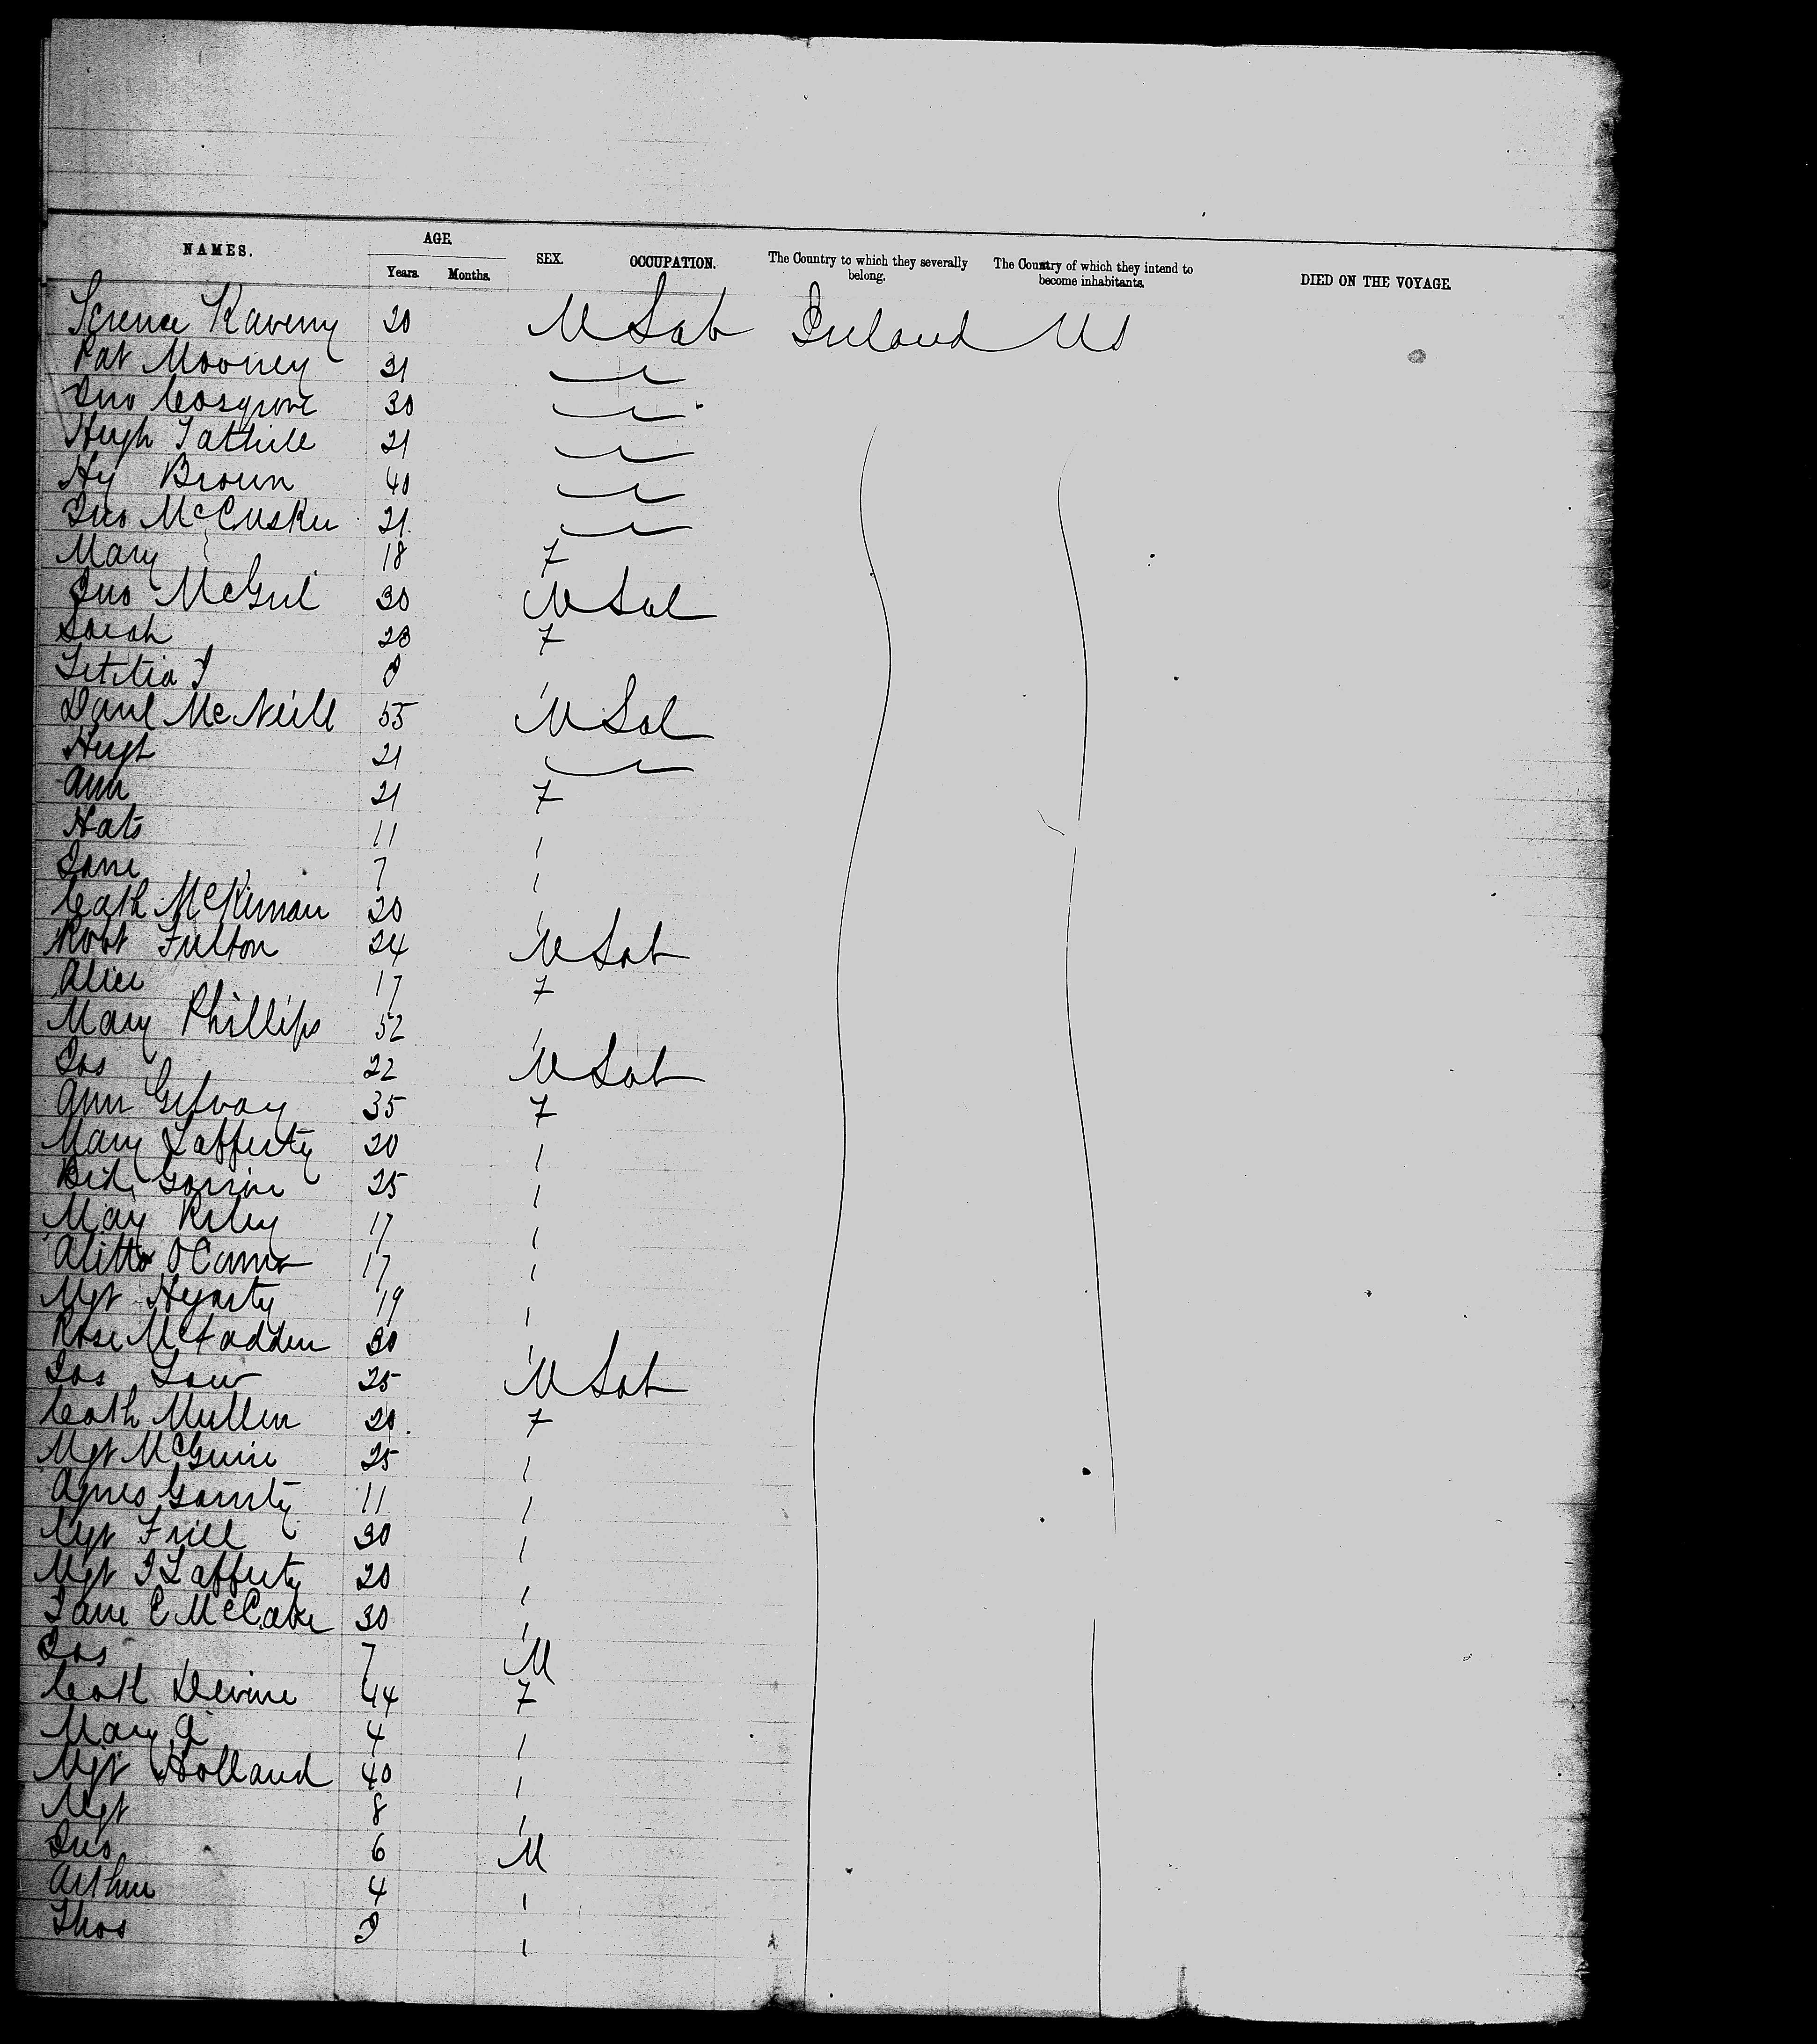 NAMES. AGE. SEX. OCCUPATION. The Country to which they severally belong. The Country of which they intend to become inhabitants. DIED ON THE VOYAGE.
Years. Months.
Terence Kaveny 20 M Lab Ireland US
Pat Mooney 31
Jno Cosgrove 30
Hugh 21
Hy Brown 40
Jno McCusker 21
Mary 18 F
Jno McGirl 30 M Lab
Sarah 28 F
Letitia J 8 1
Danl McNeill 55 M Lab
Hugh 21
Ann 21 F
11 1
Jane 7 1
Cath McKiernan 20 1
Robt Fulton 24 M Lab
Alice 17 F
Mary Phillips 52 1
Jos 22 M Lab
Ann Gilvay 35 F
Mary Lafferty 20 1
Bid 25 1
May Riley 17 1
17 1
Mgt Hegarty 19 1
Rose McFadden 30 1
Jas Law 25 M Lab
Cath Mullen 20 F
Mgt McGuire 25 1
Agnes Garrity 11 1
Mgt Friel 30 1
Mgt J Lafferty 20 1
Jane E McCabe 30 1
Jas 7 M
Cath Devine 44 F
Mary A 4 1
Mgt Holland 40 1
Mgt 8 1
Jno 6 M
Arthur 4 1
Thos 1